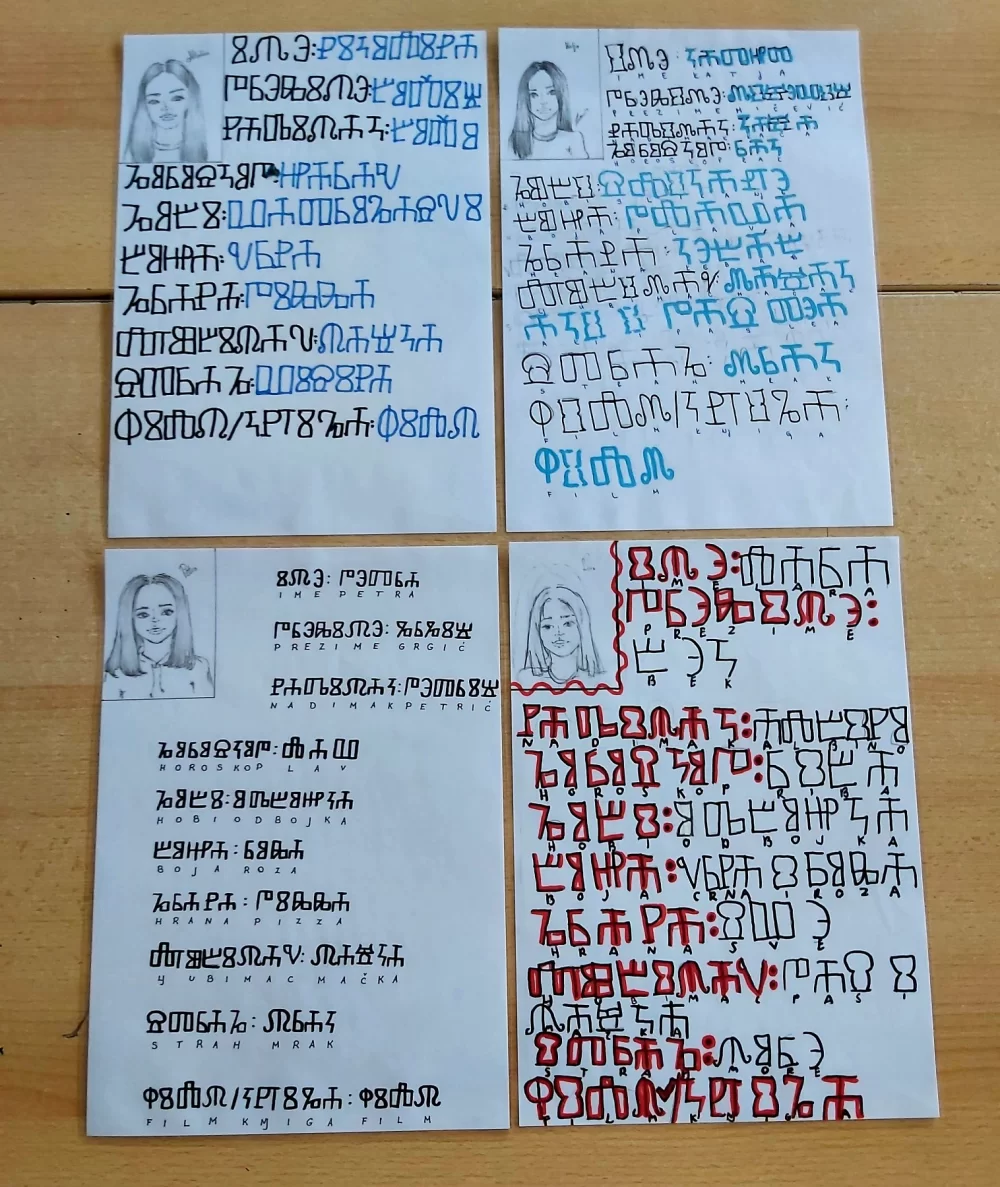 ⰉⰏⰅ: ⰐⰉⰍⰑⰎⰉⰐⰀ
ⰒⰓⰅⰈⰉⰏⰅ:
ⰐⰀⰄⰉⰏⰀⰍ:
ⰘⰑⰓⰑⰔⰍⰑⰒ: ⰡⰀⰓⰀⰜ
ⰘⰑⰁⰉ: ⰂⰀⰕⰓⰑⰃⰀⰔⰜⰉ
ⰁⰑⰡⰀ: ⰜⰓⰐⰀ
ⰘⰓⰀⰐⰀ: ⰒⰉⰈⰈⰀ
ⰎⰣⰁⰉⰏⰀⰜ: ⰏⰀⰝⰍⰀ
ⰔⰕⰓⰀⰘ: ⰂⰉⰔⰉⰐⰀ
ⰗⰉⰎⰏ/ⰍⰐⰉⰃⰀ: ⰗⰉⰎⰏ
ⰋⰏⰅ: ⰍⰀⰕⰡⰀ
I M E K A T J A
ⰒⰓⰅⰈⰋⰏⰅ: ⰏⰋⰛⰅⰂⰋⰛ
P R E Z I M E M I Ć E V I Ć
ⰐⰀⰄⰋⰏⰀⰍ:
ⰘⰑⰓⰑⰔⰍⰑⰒ: ⰓⰀⰍ
H O R O S K O P R A K
ⰘⰑⰁⰋ: ⰔⰎⰋⰍⰀⰐⰅ
ⰁⰑⰡⰀ: ⰒⰎⰀⰂⰀ
ⰘⰓⰀⰐⰀ: ⰍⰅⰁⰀⰁ
ⰎⰣⰁⰋⰏⰀⰜ: ⰏⰀⰝⰀⰍ
ⰔⰕⰓⰀⰘ: ⰏⰓⰀⰍ
S T R A H M R A K
ⰗⰋⰎⰏ/ⰍⰐⰋⰃⰀ:
F I L M K NJ I G A
ⰗⰋⰎⰏ
F I L M
ⰉⰏⰅ: ⰒⰅⰕⰓⰀ
I M E P E T R A
ⰒⰓⰅⰈⰉⰏⰅ: ⰃⰓⰃⰉⰛ
P R E Z I M E G R G I Ć
ⰐⰀⰄⰉⰏⰀⰍ: ⰒⰅⰕⰓⰉⰛ
N A D I M A K P E T R I Ć
ⰘⰑⰓⰑⰔⰍⰑⰒ: ⰎⰀⰂ
H O R O S K O P L A V
ⰘⰑⰁⰉ: ⰑⰄⰁⰑⰡⰍⰀ
H O B I O D B O J K A
ⰁⰑⰡⰀ: ⰓⰑⰈⰀ
B O J A R O Z A
ⰘⰓⰀⰐⰀ: ⰒⰉⰈⰈⰀ
H R A N A P I Z Z A
ⰎⰣⰁⰉⰏⰀⰜ: ⰏⰀⰝⰍⰀ
LJ U B I M A C M A Č K A
ⰔⰕⰓⰀⰘ: ⰏⰓⰀⰍ
S T R A H M R A K
ⰗⰉⰎⰏ/ⰍⰐⰉⰃⰀ: ⰗⰉⰎⰏ
F I L M K NJ I G A F I L M
ⰋⰏⰅ: ⰎⰀⰓⰀ
I M E L A R A
ⰒⰓⰅⰈⰋⰏⰅ:
P R E Z I M E
ⰁⰅⰍ
B E K
ⰐⰀⰄⰋⰏⰀⰍ: ⰀⰎⰁⰋⰐⰑ
N A D I M A K A L B I N O
ⰘⰑⰓⰑⰔⰍⰑⰒ: ⰓⰋⰁⰀ
H O R O S K O P R I B A
ⰘⰑⰁⰋ: ⰑⰄⰁⰑⰡⰍⰀ
H O B I O D B O J K A
ⰁⰑⰡⰀ: ⰜⰓⰐⰀ Ⰻ ⰓⰑⰈⰀ
B O J A C R N A I R O Z A
ⰘⰓⰀⰐⰀ: ⰔⰂⰅ
H R A N A S V E
ⰎⰣⰁⰋⰏⰀⰜ: ⰒⰀⰔ Ⰻ
ⰏⰀⰝⰍⰀ
ⰔⰕⰓⰀⰘ: ⰏⰑⰓⰅ
S T R A H M O R E
ⰗⰋⰎⰏ/ⰍⰐⰋⰃⰀ